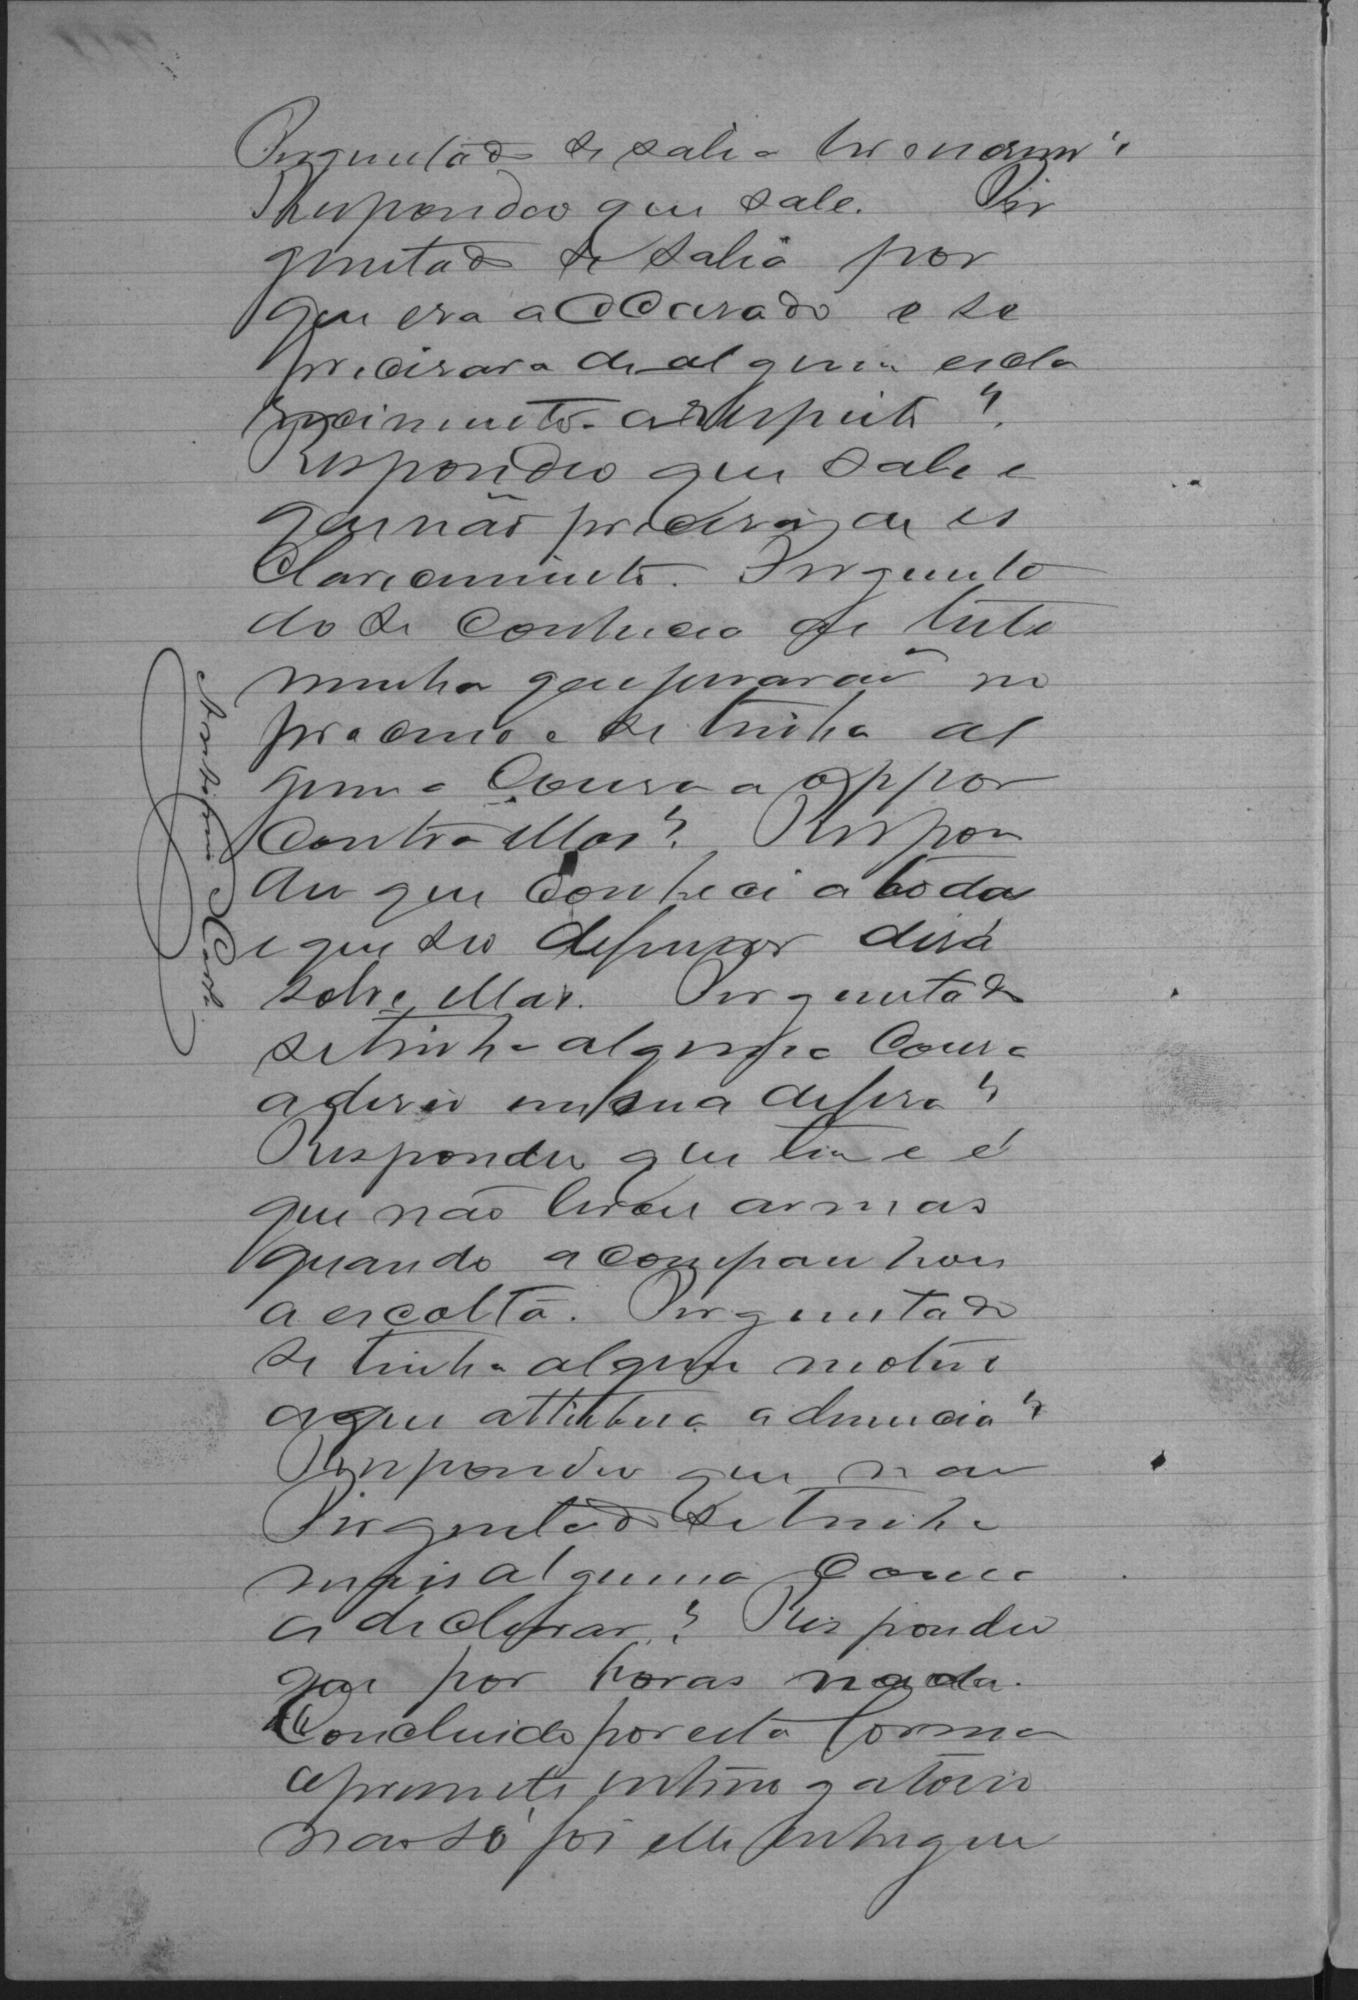 Perguntado se sabia ler e escrever?
Respondeo que sabe. Per
guntado se sabia por
que era accusado e se
precisava de algum escla
recimento a respeito?
Respondeo que sabe e
que não precisa de es
clarecimento. Pergunta
do se conhecia as teste
munha que jurarão no
processo e se tinha al
guma cousa a oppor
contra ellas? Respon
deu que conheci a todas
e que seo defensor dirá
sobre ellas. Perguntado
se tinha alguma cousa
a dizer em sua defesa?
Respondeu que tem e é
que não levou armas
quando acompanhou
a escolta. Perguntado
se tinha algum motivo
a que attribua a denuncia?
Respondeu que não
Perguntado se tinha
mais alguma cousa
a declarar? Respondeu
que por horas nada.
Concluido por esta forma
o presente interrogatorio
não só foi elle entregue